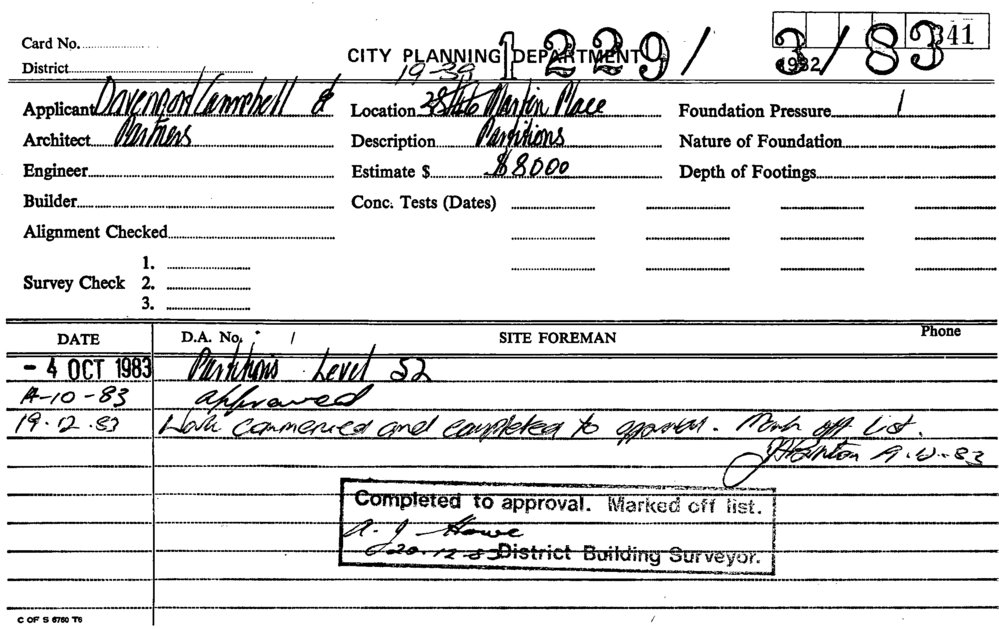 Card No.
CITY PLANNING DEPARTMENT
1 229/3/83
1982
341
District
19-39
Applicant Davenport Campbell &
Location State Martin Place
Foundation Pressure
Architect Partners
Description Partitions
Nature of Foundation
Engineer
Estimate $ $8000
Depth of Footings
Builder
Conc. Tests (Dates)
Alignment Checked
1.
Survey Check 2.
3.
DATE D.A. No. SITE FOREMAN Phone
- 4 OCT 1983 Partitions Level 52
-10-83 approved
19.12.83 Work commenced and completed to approval. Mark off List.
83
Completed to approval. Marked off list.
A. J. Howe
20.12.83 District Building Surveyor.
C OF S 6760 T6